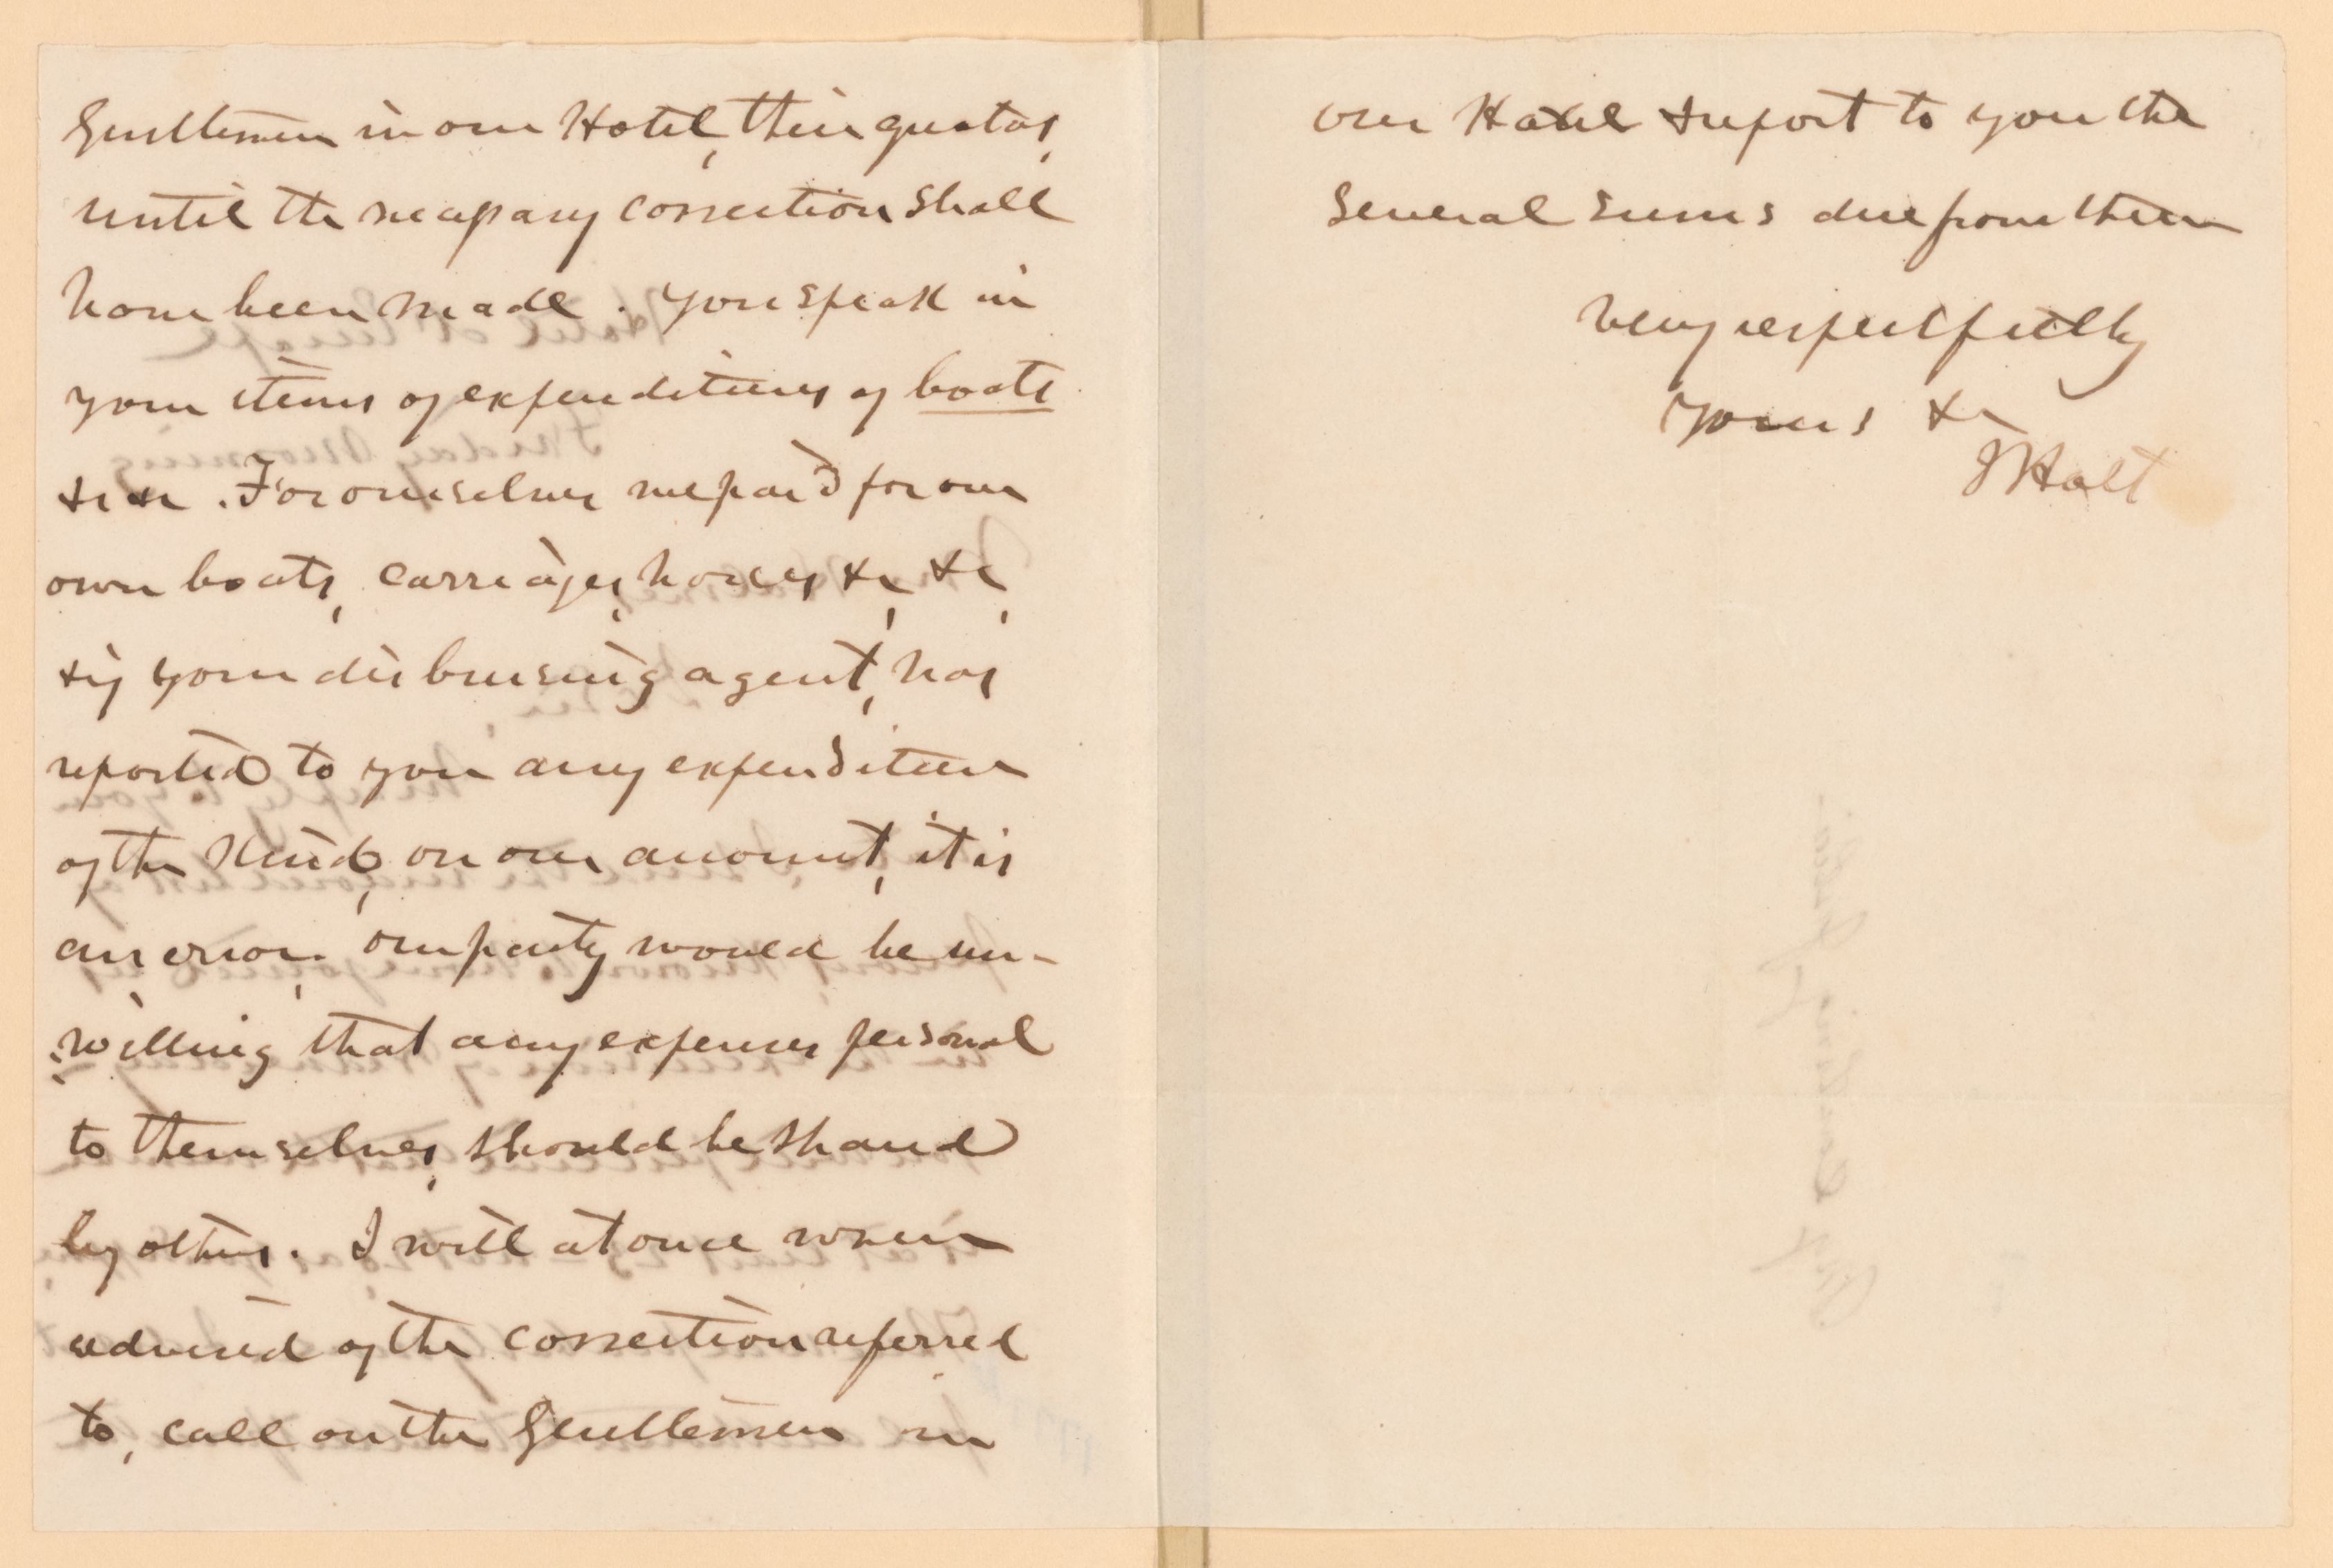 Gentlemen in our Hotel, their quotas,
until the necessary correction shall
have been made. You speak in
your items of expenditures of boats
&c &c. For ourselves we paid for our
own boats, carriages, horses &c, &c,
& if your disbursing agent, has
reported to you any expenditure
of the kind, on our account, it is
an error. Our party would be un-
willing that any expenses personal
to themselves, should be shared
by others. I will at once when
advised of the correction referred
to, call on the Gentlemen in
our Hotel & report to you the
Several sums due from them
Very respectfully
Yours &c
J Holt